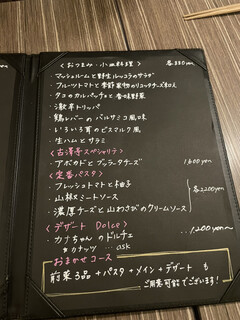 〈おつまみ・小皿料理〉 各880yen
・マッシュルームと野生ルッコラのサラダ
・フルーツトマトと季節果物のリコッタチーズ和え
・タコのカルパッチョと香味野菜
・激辛トリッパ
・鶏レバーのバルサミコ風味
・いろいろ茸のビスマルク風
・生ハムとサラミ
・アボカドとブッラータチーズ 1,600yen
〈定番パスタ〉
・フレッシュトマトと柚子
・山椒ミートソース 各2200yen
・濃厚チーズと山わさびのクリームソース
〈デザート Dolce〉 ...1,200yen〜
・カナちゃんのドルチェ
ask
おまかせコース
前菜3品+パスタ+メイン+デザート も
ご用意可能でございます!